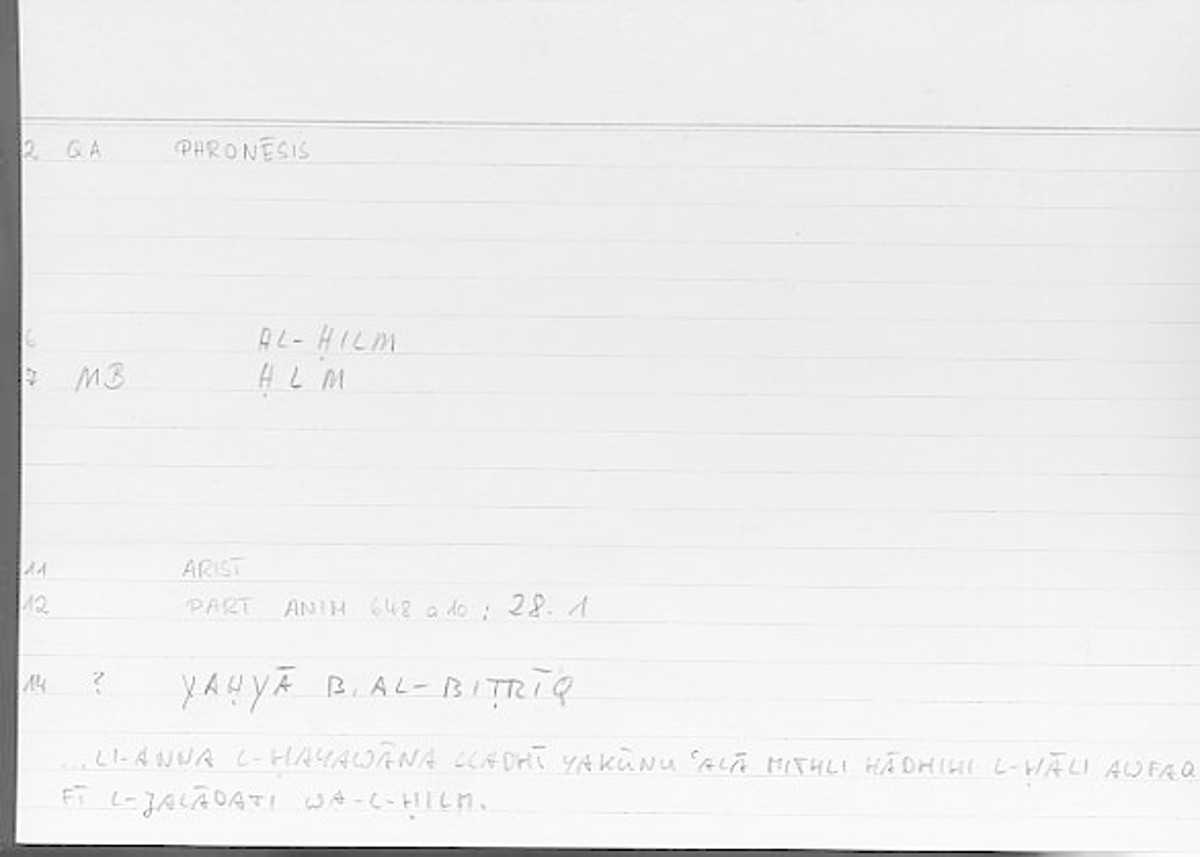 2 QA PHRONĒSIS
6 AL-ḤILM
7 MB Ḥ L M
11 ARIST
12 PART ANIM 648 a 10 ; 28. 1
14 ? YAḤYĀ B. AL-BIṬRĪQ
...LI-ANNA L-ḤAYAWĀNA LLADHĪ YAKŪNU ʿALĀ MITHLI HĀDHIHI L-ḤĀLI AWFAQ
FĪ L-JALĀDATI WA-L-ḤILM.